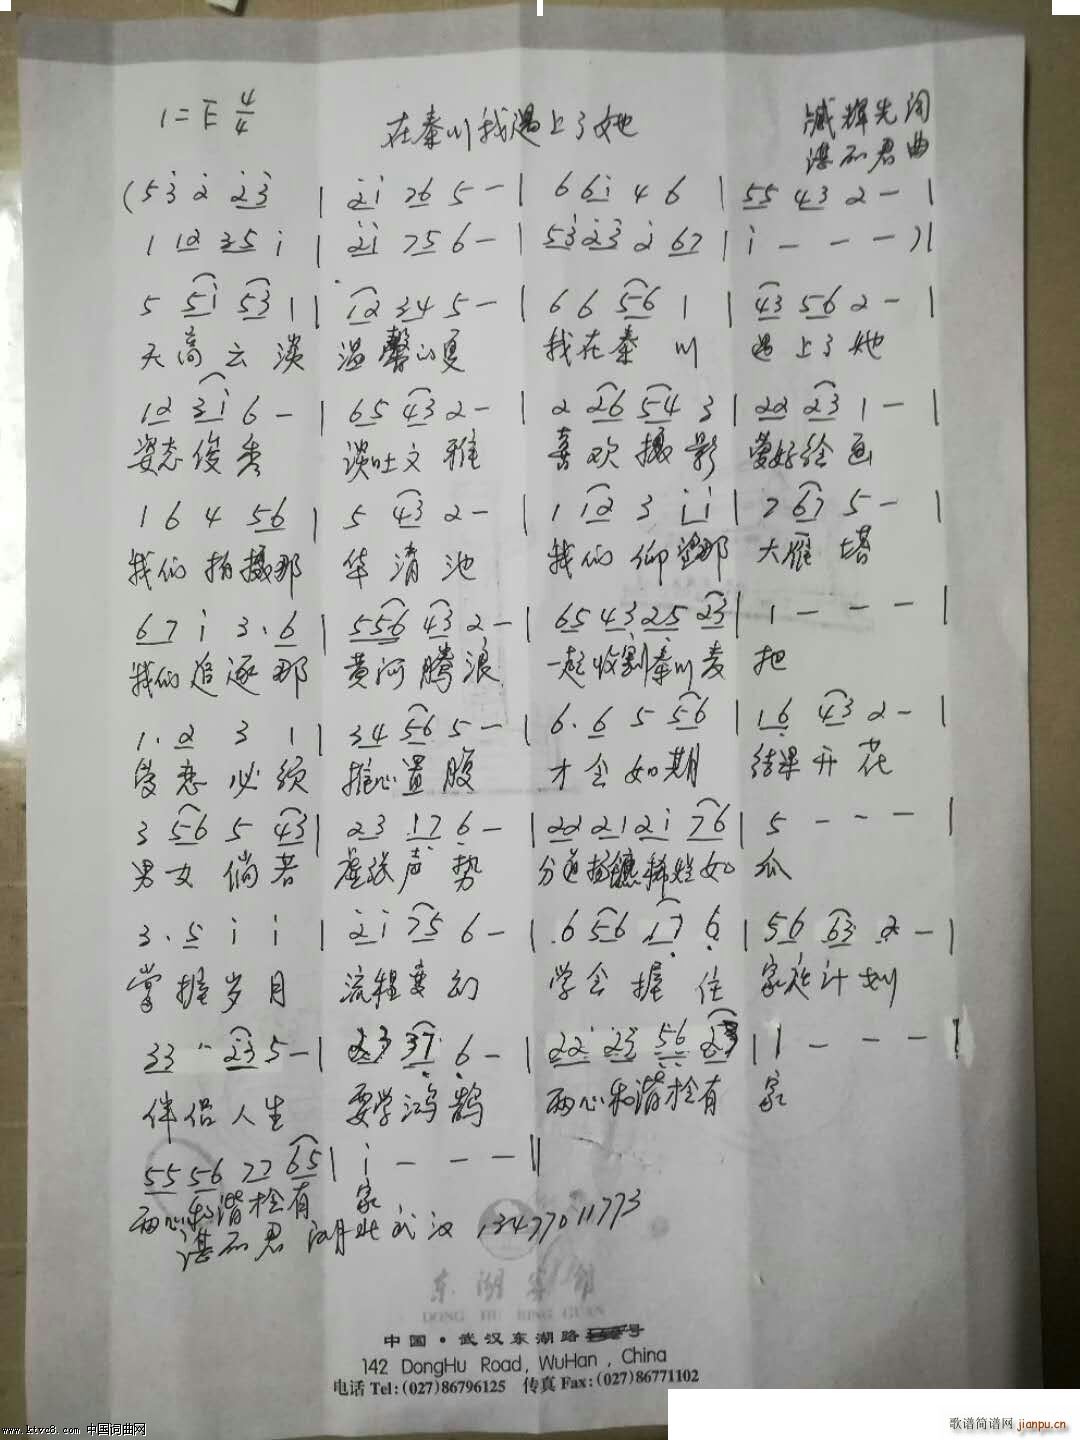 1=E 4/4
在秦川我遇上了她
臧辉先词
谌丕君曲
(5 3 2 2 3 | 2 1 7 6 5 - | 6 6 1 4 6 | 5 5 4 3 2 - |
1 1 2 3 5 1 | 2 1 7 5 6 - | 5 3 2 3 2 6 7 | 1 - - - ) |
5 5 1 5 3 1 | 1 2 3 4 5 - | 6 6 5 6 1 | 4 3 5 6 2 - |
天高云淡 温馨的夏 我在秦川 遇上了她
1 2 3 1 6 - | 6 5 4 3 2 - | 2 2 6 5 4 3 | 2 2 2 3 1 - |
姿态俊秀 谈吐文雅 喜欢摄影 爱好绘画
1 6 4 5 6 | 5 4 3 2 - | 1 1 2 3 1 1 | 7 6 7 5 - |
我们拍摄那 华清池 我们仰望那 大雁塔
6 7 1 3 . 6 | 5 5 6 4 3 2 - | 6 5 4 3 2 5 2 3 | 1 - - - |
我们追逐那 黄河腾浪 一起收割秦川麦 把
1 . 2 3 1 | 3 4 5 6 5 - | 6 . 6 5 5 6 | 1 6 4 3 2 - |
爱恋必须 推心置腹 才会如期 结果开花
3 5 6 5 4 3 | 2 3 1 7 6 - | 2 2 2 1 2 1 7 6 | 5 - - - |
男女倘若 虚张声势 分道扬镳稀烂如 瓜
3 . 5 1 1 | 2 1 7 5 6 - | 6 5 6 1 7 6 | 5 6 6 3 2 - |
掌握岁月 流程变幻 学会握住 家庭计划
3 3 2 3 5 - | 2 3 3 7 6 - | 2 2 2 3 5 6 2 3 | 1 - - - |
伴侣人生 要学鸿鹄 两心和谐才有 家
5 5 5 6 7 7 6 5 | 1 - - - ||
两心和谐才有 家
谌丕君 湖北武汉 13477011773
东湖宾馆
DONG HU BING GUAN
中国·武汉东湖路 号
142 DongHu Road, WuHan , China
电话 Tel:(027)86796125 传真 Fax:(027)86771102
www.ktvc8.com 中国词曲网
歌谱简谱网 jianpu.cn